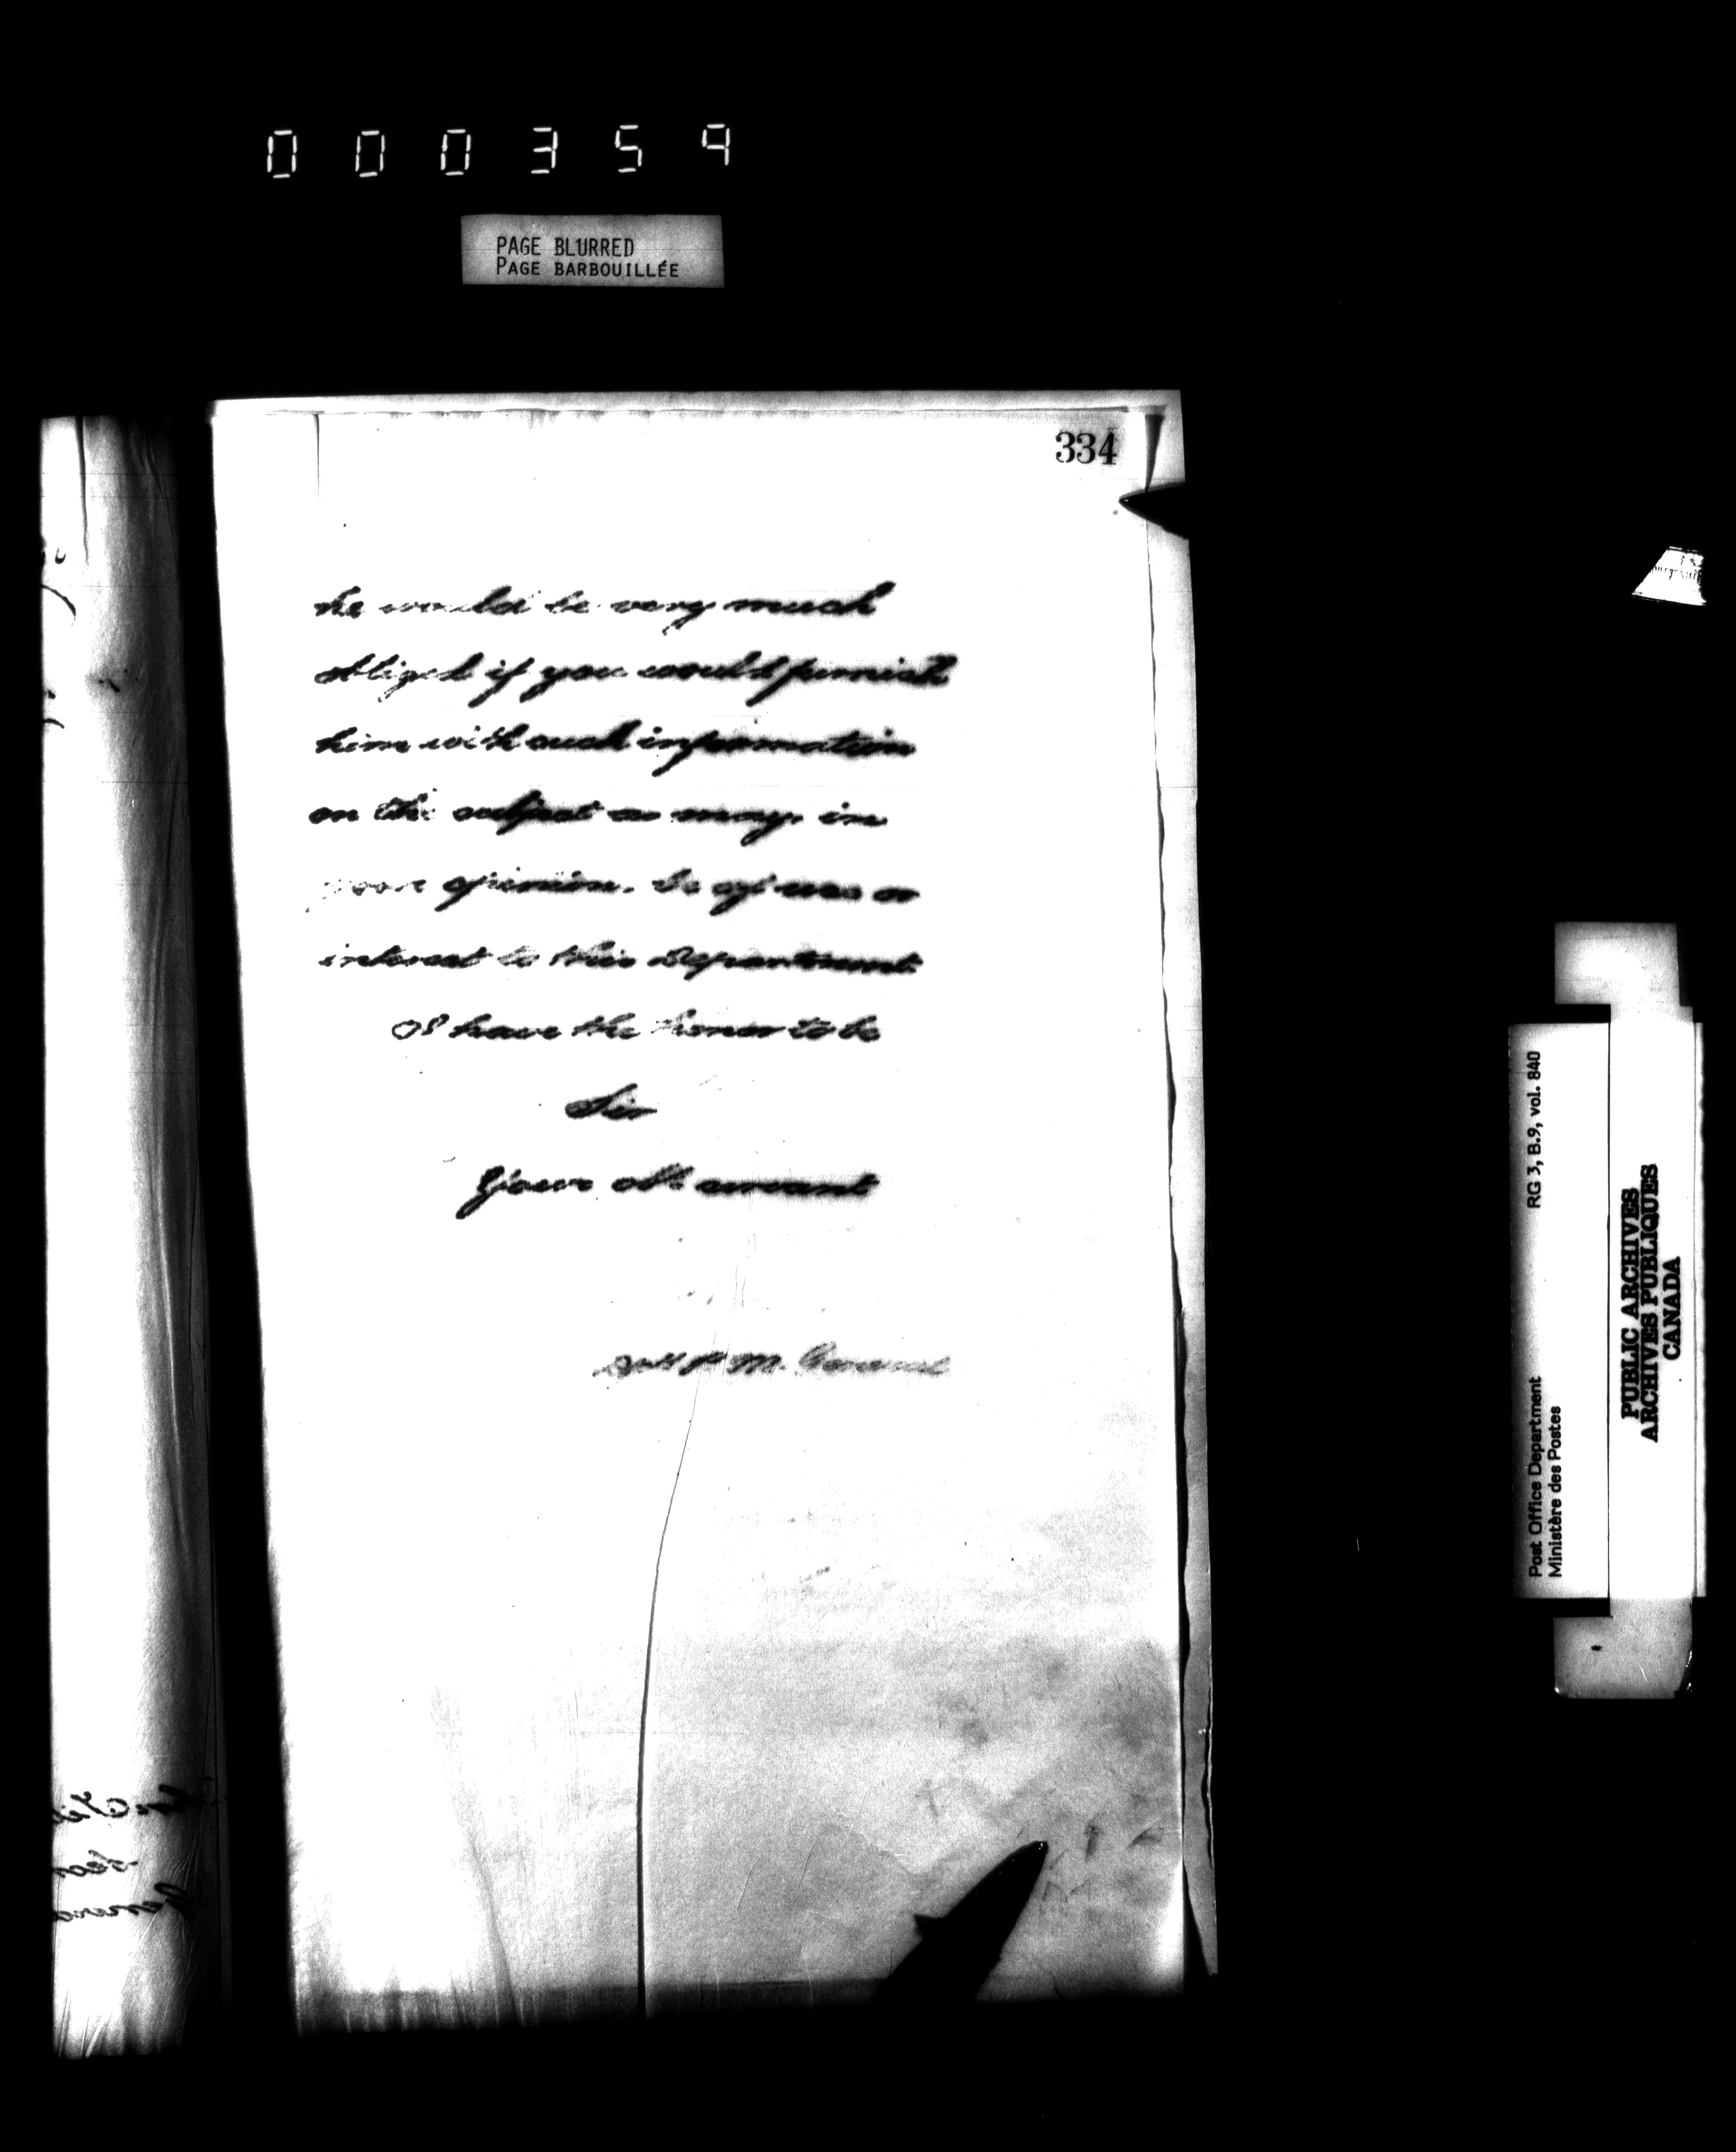 000359
PAGE BLURRED
PAGE BARBOUILLÉE
334
he would be very much
obliged if you would furnish
him with such information
on the subject as may, in
your opinion, be of use or
interest to this Department
I have the honor to be
Sir
Your obt servant
P. M. General
RG 3, B.9, vol. 840
Post Office Department
Ministère des Postes
PUBLIC ARCHIVES
ARCHIVES PUBLIQUES
CANADA